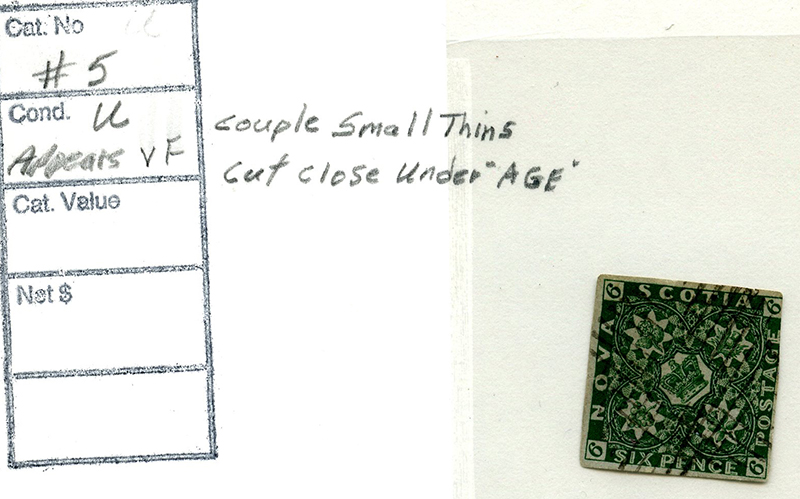 Cat. No
#5
Cond. U
Appears VF
Cat. Value
Net $
Couple Small Thins
Cut Close Under "AGE"
6 SCOTIA 6
NOVA
POSTAGE
6 SIX PENCE 6